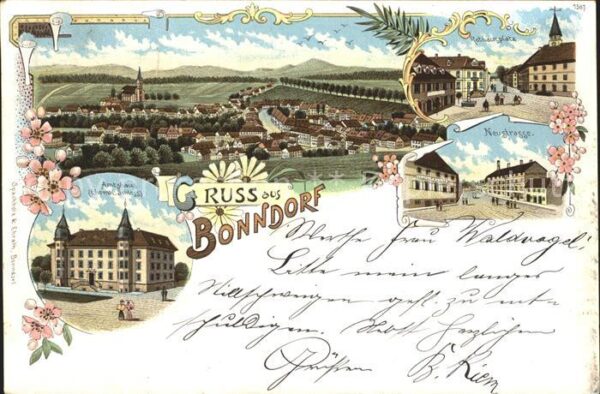 1307
Rathausplatz
Neustrasse.
Amtshaus
(Ehemal. Schloss)
GRUSS aus
BONNDORF
Werthe Frau Waldvogel!
Bitte mein langes
Stillschweigen gefl. zu ent-
schuldigen. Nebst herzlichen
Grüßen B. Kiem